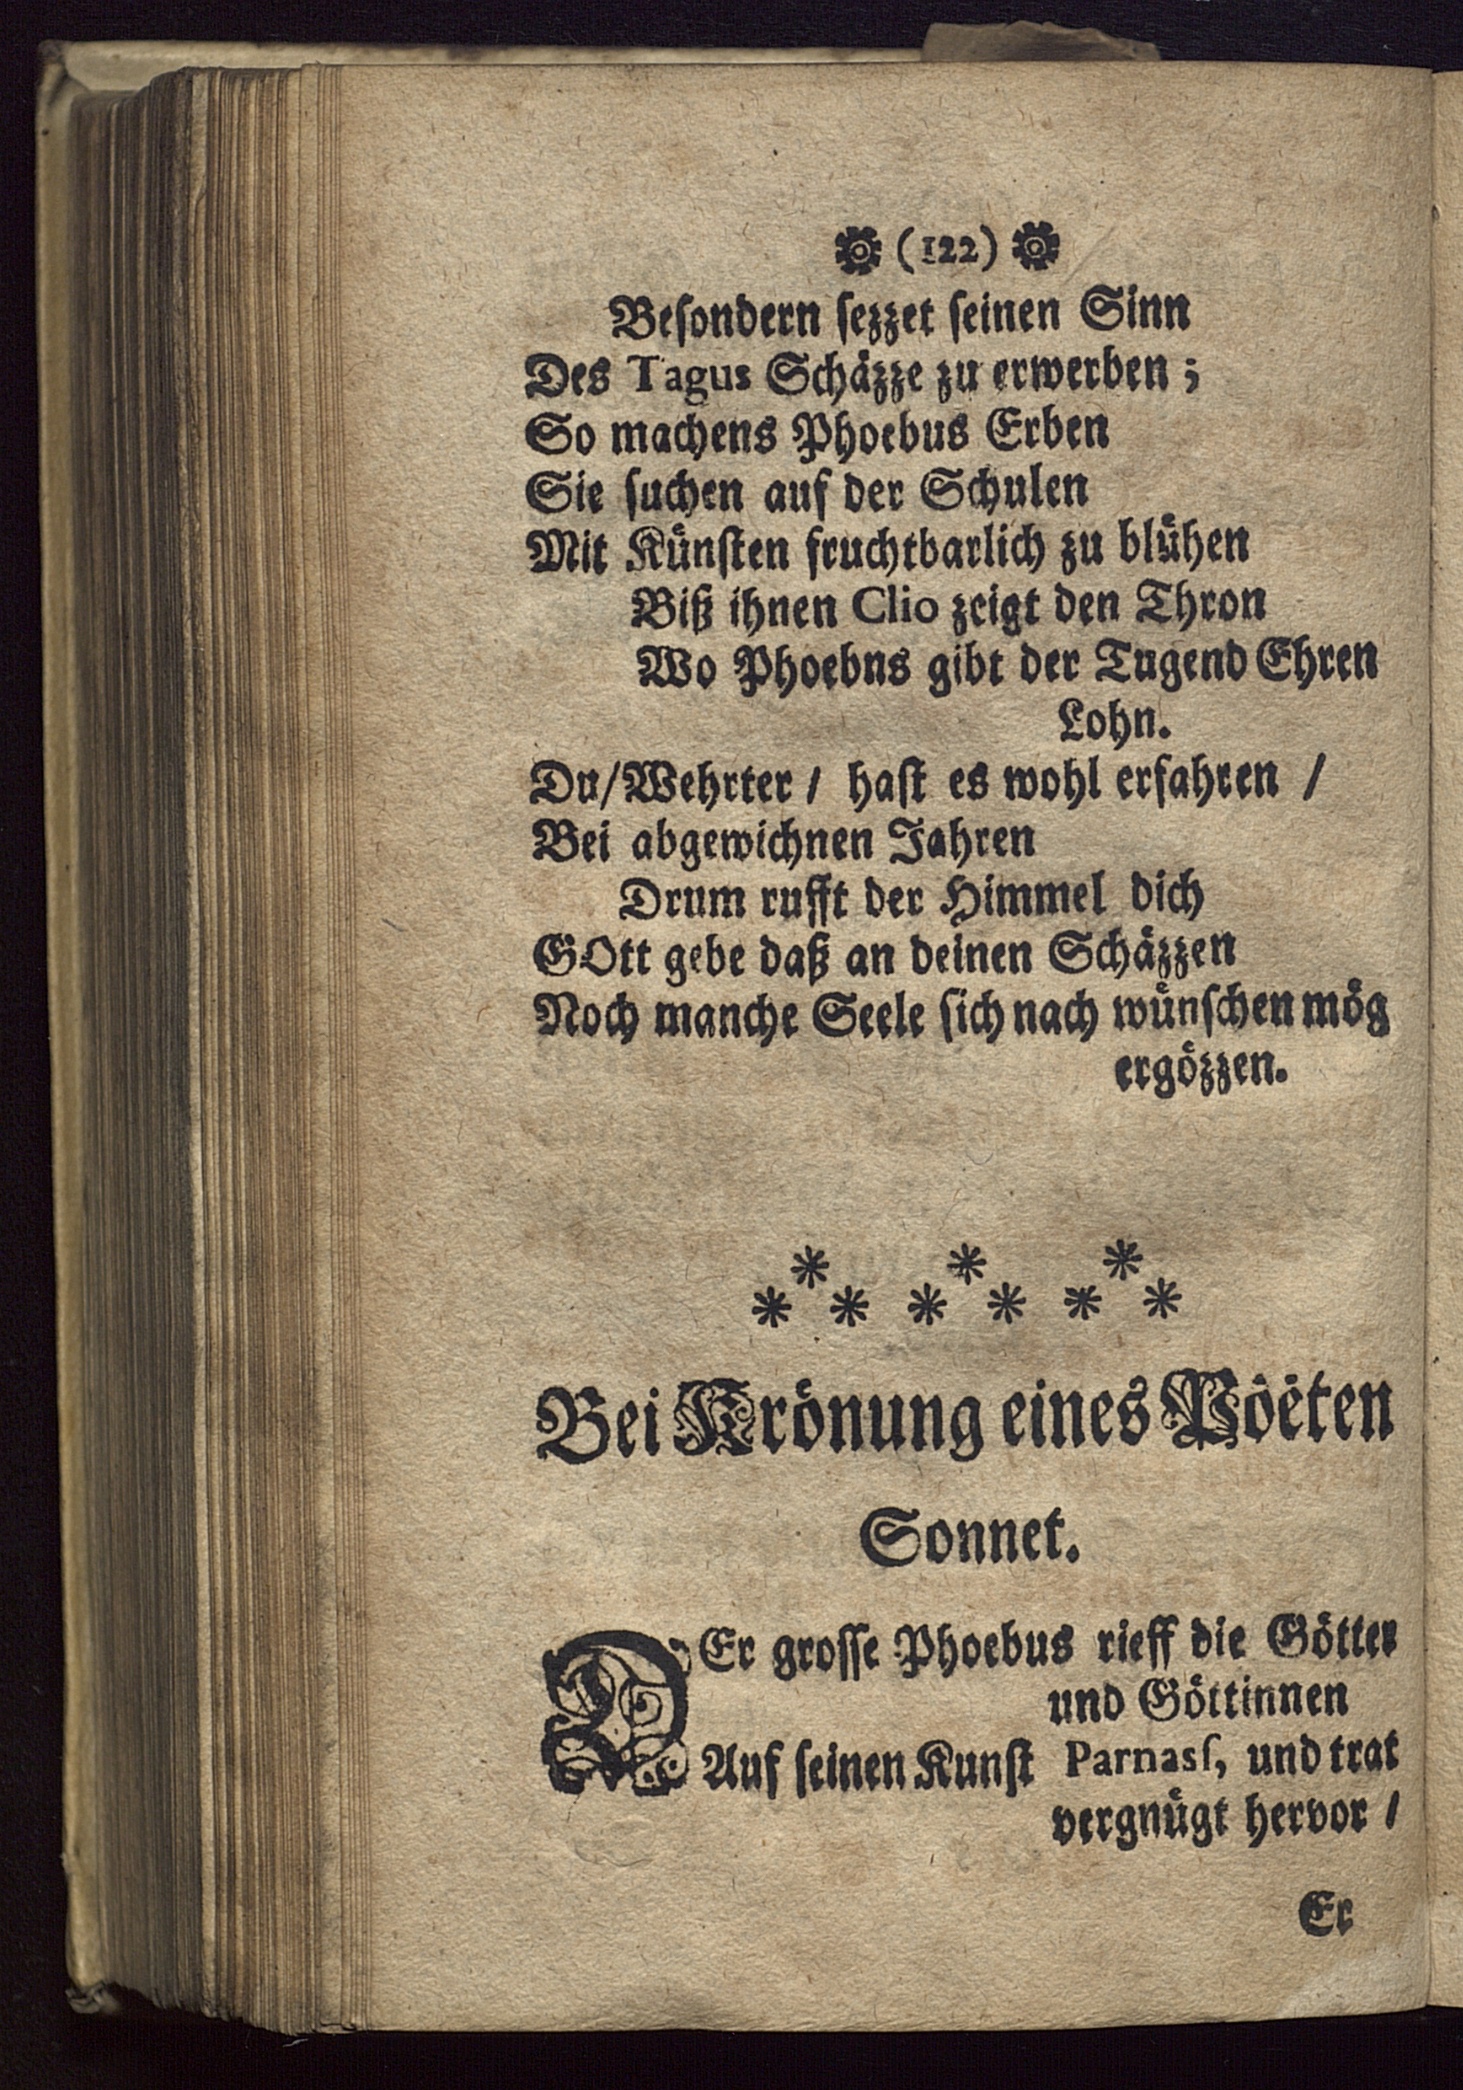 (122)
Beſondern ſezzet ſeinen Sinn
Des Tagus Schäzze zu erwerben ;
So machens Phoebus Erben
Sie ſuchen auf der Schulen
Mit Künſten fruchtbarlich zu blühen
Biß ihnen Clio zeigt den Thron
Wo Phoebns gibt der Tugend Ehren
Lohn.
Du/Wehrter / haſt es wohl erfahren /
Bei abgewichnen Jahren
Drum rufft der Himmel dich
GOtt gebe daß an deinen Schäzzen
Noch manche Seele ſich nach wünſchen mög
ergözzen.
* * * * * * * * *
Bei Krönung eines Pöëten
Sonnet.
DEr groſſe Phoebus rieff die Götter
und Göttinnen
Auf ſeinen Kunſt Parnasſ, und trat
vergnügt hervor /
Er